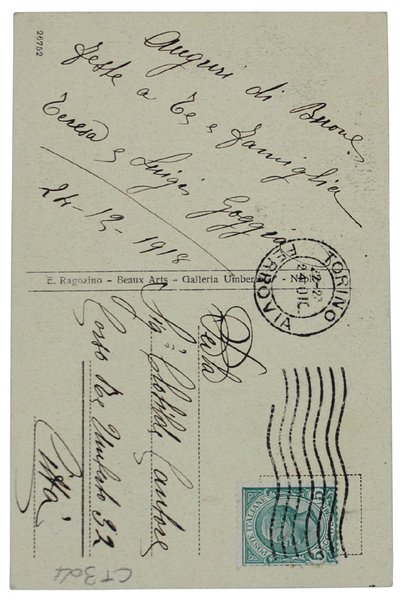 26752
Auguri di Buone
feste a Te e famiglia
Teresa e Luigi
24-12-1918
E. Ragozino - Beaux Arts - Galleria Umberto - Napoli
TORINO
FERROVIA
24 DIC
Sig.ª Clotilde Cantore
Corso Re Umberto 92
Città
POSTE ITALIANE
CT3ds